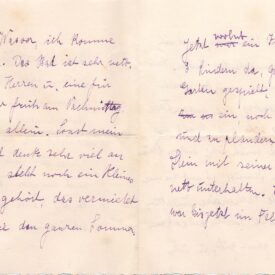 Wasser, ich komme
. Das Bad ist sehr nett,
Herren u. eine für
früh am Nachmittag
allein. Sonst mein
denke sehr viel an
steht noch ein Kleines
gehört das vermietet
den ganzen Sommer
jetzt wohnt ein
3 Kindern da,
Garten gespielt
ein noch
und zu plaudern
Sein mit seiner
nett unterhalten.
war bis jetzt im